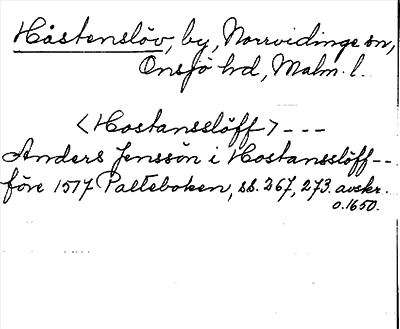 Håstenslöv, by, Norrvidinge sn,
Onsjö hd, Malm. l.
<Hostansslöff> - - -
Anders Jenssøn i Hostansslöff - -
före 1517 Palteboken, ss. 267, 273. avskr.
o. 1650.